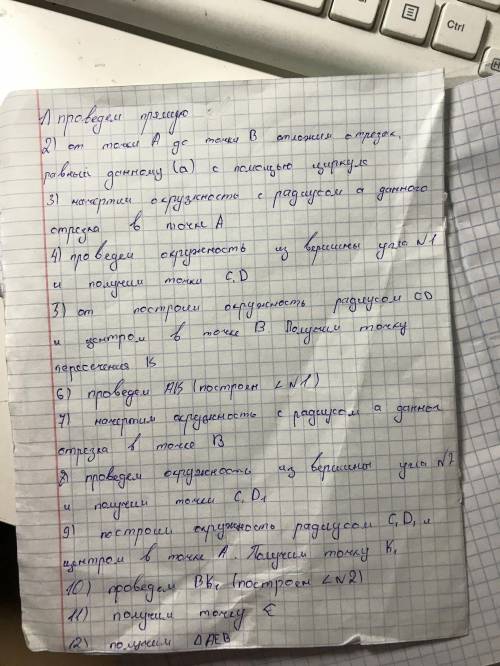 Ctrl
1) проведем прямую
2) от точки А до точки В отложим отрезок,
равный данному (а) с помощью циркуля
3) начертим окружность с радиусом а данного
отрезка в точке А
4) проведем окружность из вершины угла N1
и получим точки C,D
5) от построим окружность радиусом CD
и центром в точке В Получим точку
пересечения К
6) проведем АК (построен ∠N1)
7) начертим окружность с радиусом а данного
отрезка в точке В
8) проведем окружность из вершины угла N2
и получим точки C,D₁
9) построим окружность радиусом C,D₁ и
центром в точке А. Получим точку К₁
10) проведем ВК₁ (построен ∠N2)
11) получим точку Е
12) получим ΔАЕВ